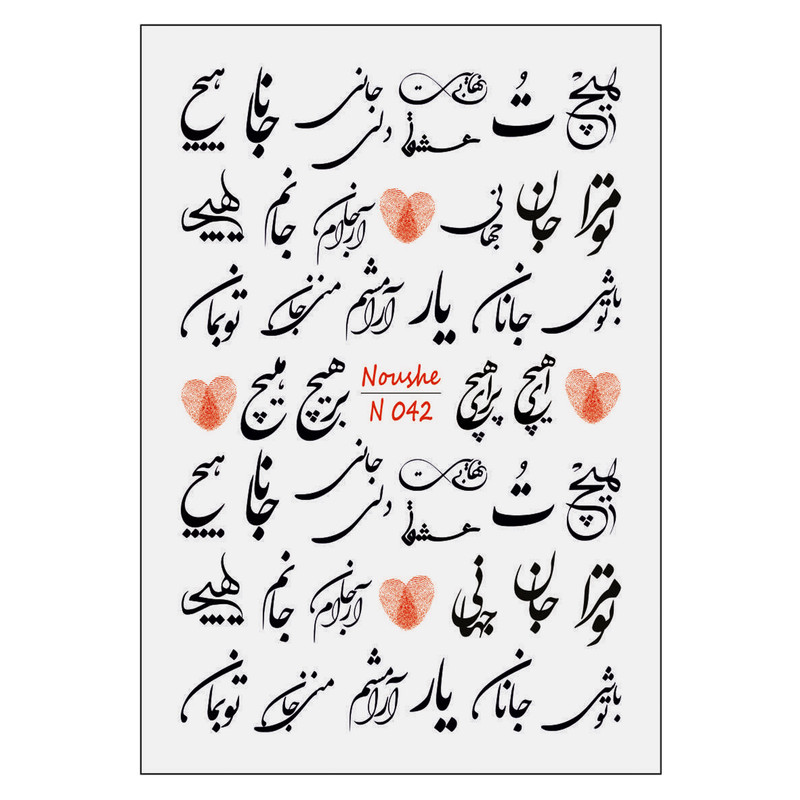 هیچ تُ عشق بی‌نهایت جانی دلی جانا هیچ
تو مرا جان جهانی آرام جان جانم هیچ
تو باشی جانان یار آرامشم جان من تو بمان
هیچ Noushe N 042 بر هیچ هیچ
هیچ تُ عشق بی‌نهایت جانی دلی جانا هیچ
تو مرا جان جهانی آرام جان جانم هیچ
تو باشی جانان یار آرامشم جان من تو بمان